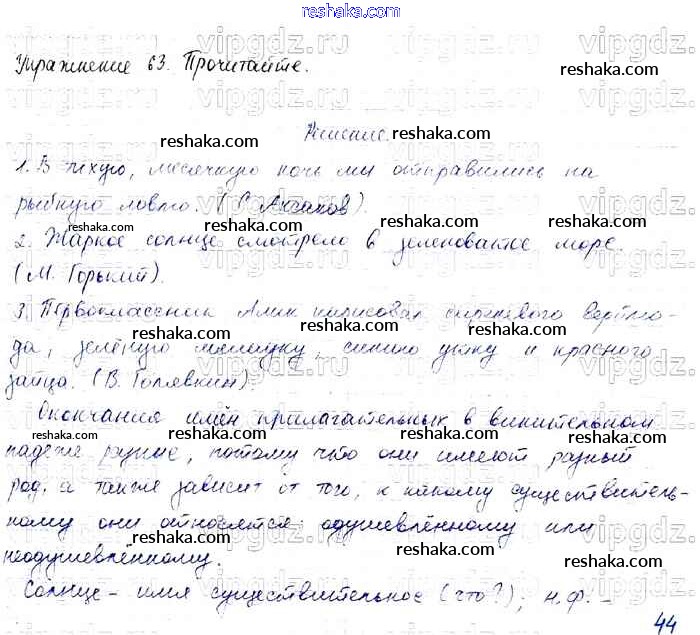 reshaka.com
Упражнение 63. Прочитайте.
Решение.
1. В тихую, месячную ночь мы отправились на
рыбную ловлю. (С. Аксаков).
2. Жаркое солнце смотрело в зеленоватое море.
(М. Горький).
3. Первоклассник Алик нарисовал сиреневого верблю-
да, зелёную лягушку, синюю утку и красного
зайца. (В. Голявкин).
Окончания имён прилагательных в винительном
падеже разные, потому что они имеют разный
род, а также зависит от того, к какому существитель-
ному они относятся: одушевлённому или
неодушевлённому.
Солнце – имя существительное (что?), н.ф. –
44